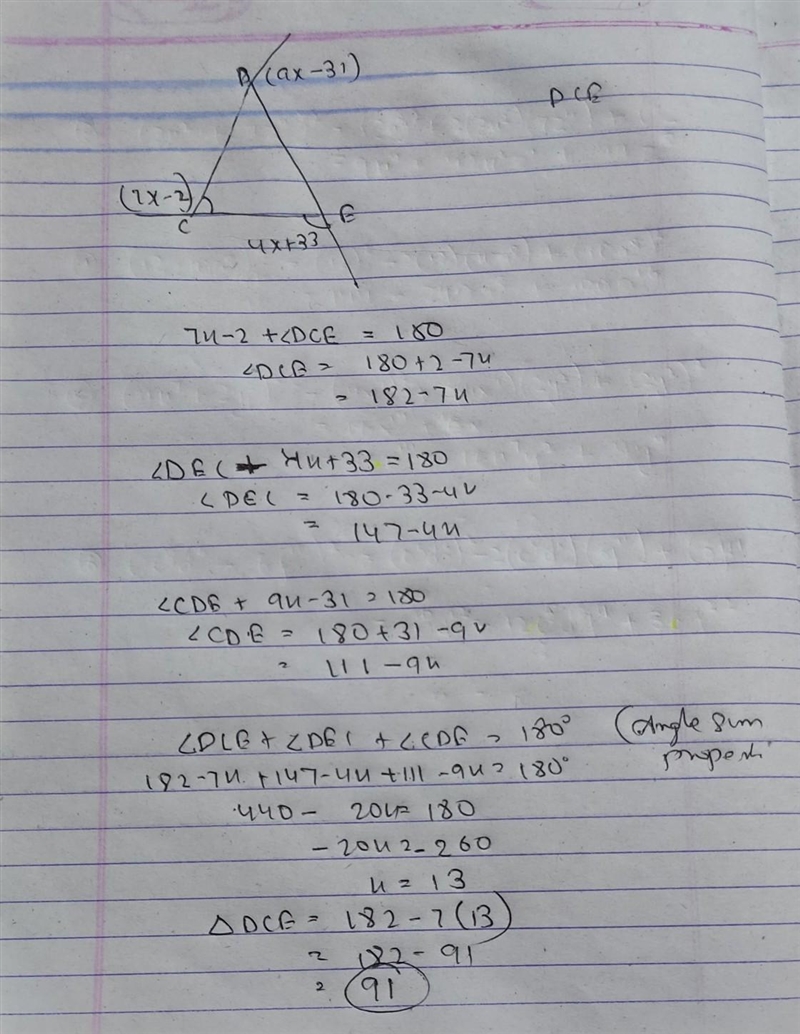 D (9x-31)
DCE
(7x-2)
C
E
4x+33
7x-2 + ∠DCE = 180
∠DCE = 180+2-7x
= 182-7x
∠DEC + 4x+33 = 180
∠DEC = 180-33-4x
= 147-4x
∠CDE + 9x-31 = 180
∠CDE = 180+31-9x
= 111-9x
∠DCE + ∠DEC + ∠CDE = 180° (Angle sum
182-7x+147-4x+111-9x=180°
440 - 20x = 180
-20x = -260
x = 13
△DCE = 182-7(13)
= 182-91
= 91